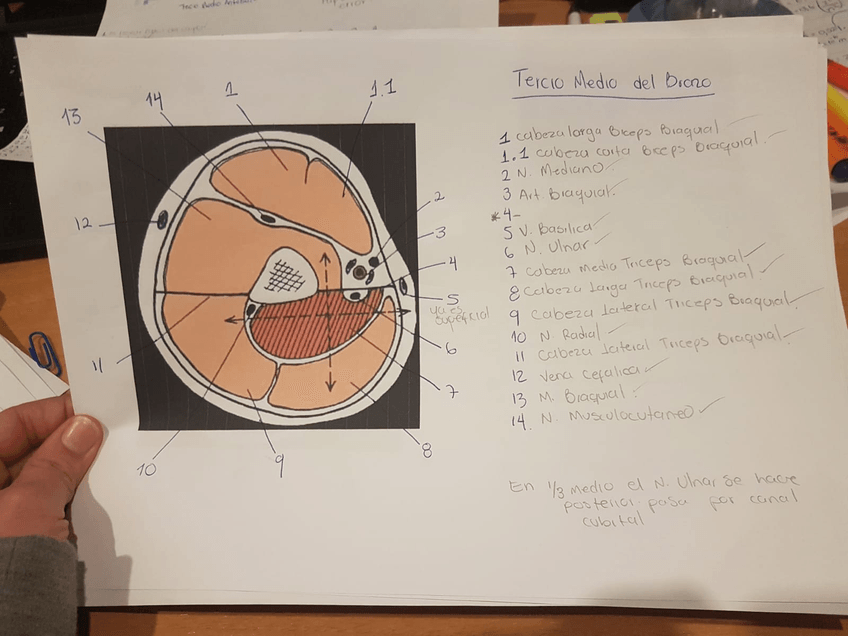 Tercio Medio del Brazo
1 cabeza larga Biceps Braquial
1.1 cabeza corta Biceps Braquial
2 N. Mediano
3 Art. Braquial
*4-
5 V. Basilica
6 N. Ulnar
7 Cabeza Media Triceps Braquial
8 Cabeza Larga Triceps Braquial
9 Cabeza Lateral Triceps Braquial
10 N. Radial
11 Cabeza Lateral Triceps Braquial
12 Vena Cefalica
13 M. Braquial
14. N. Musculocutaneo
En 1/3 medio el N. Ulnar se hace
posterior. pasa por canal
cubital
13
14
1
1.1
2
3
12
4
5
superficial
6
11
7
10
9
8